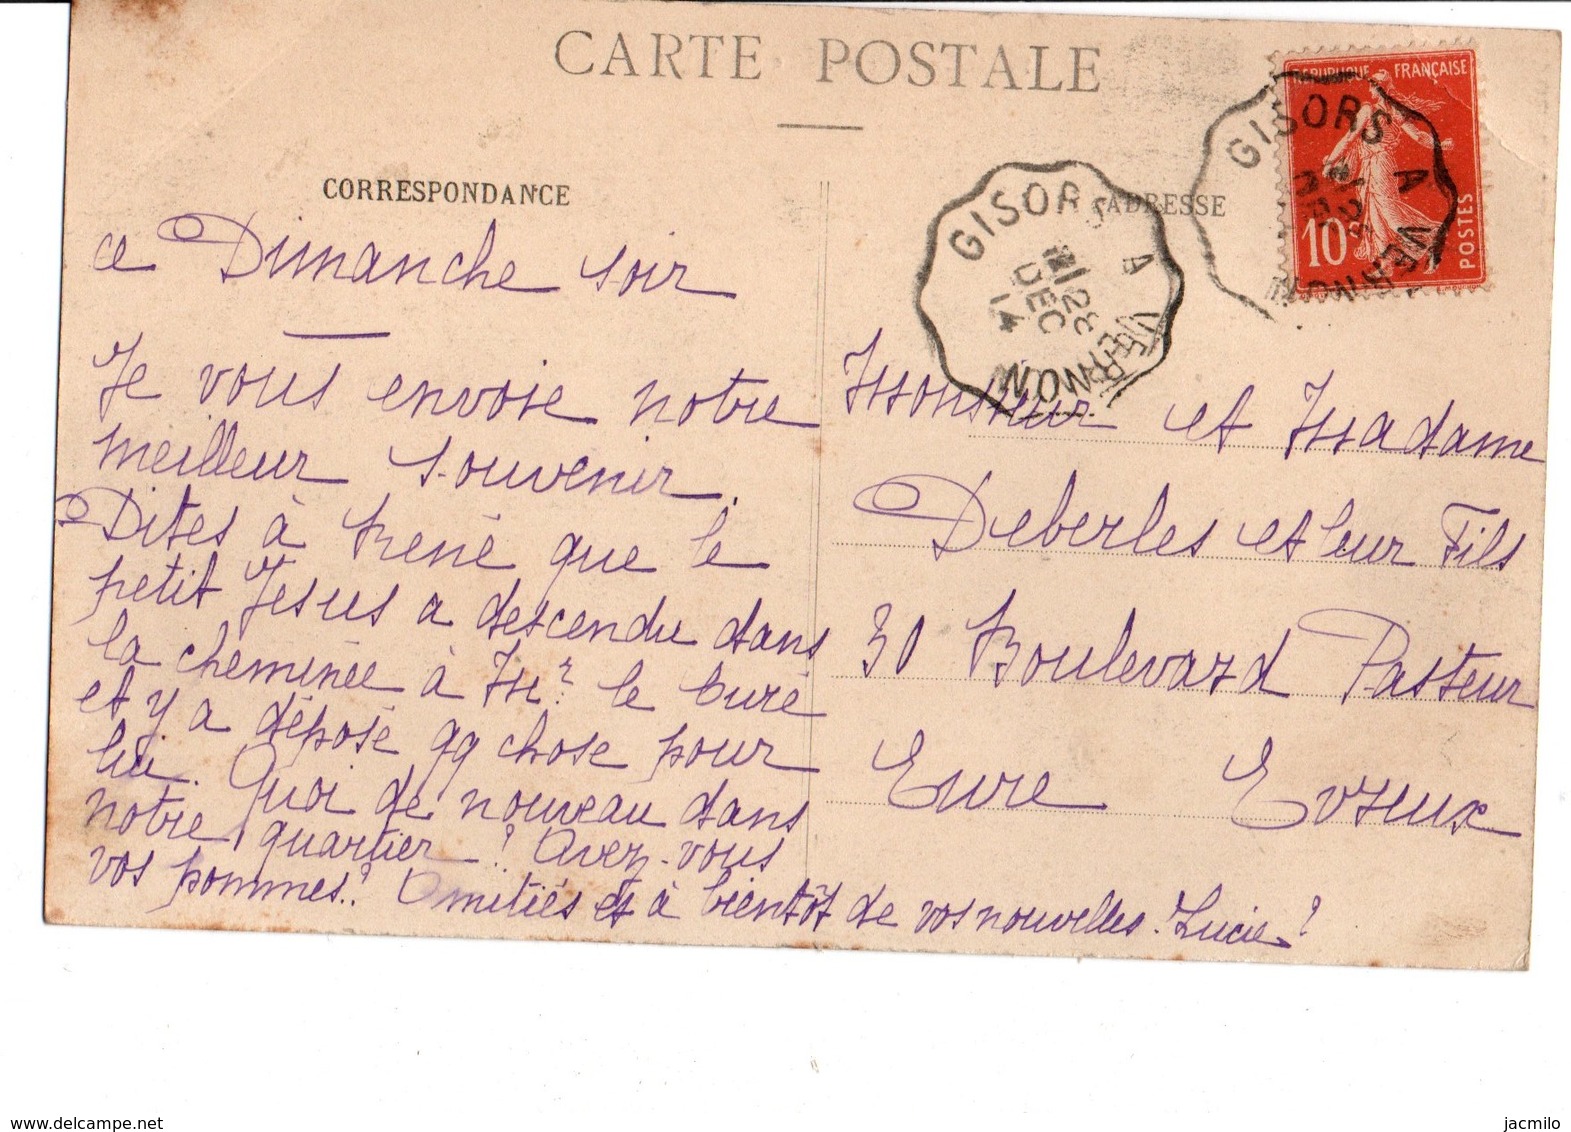 CARTE POSTALE
CORRESPONDANCE
ADRESSE
REPUBLIQUE FRANÇAISE
10c POSTES
GISORS A VERNON
28
DEC
14
GISORS A VERNON
ce Dimanche soir
Je vous envoie notre
meilleur souvenir.
Dites à René que le
petit Jesus a descendu dans
la cheminée à Mr le Curé
et y a déposé qq chose pour
lui. Quoi de nouveau dans
notre quartier? Avez-vous
vos pommes? Amitiés et à bientôt de vos nouvelles. Lucie
Monsieur et Madame
Deberles et leur Fils
30 Boulevard Pasteur
Eure Evreux
www.delcampe.net
jacmilo